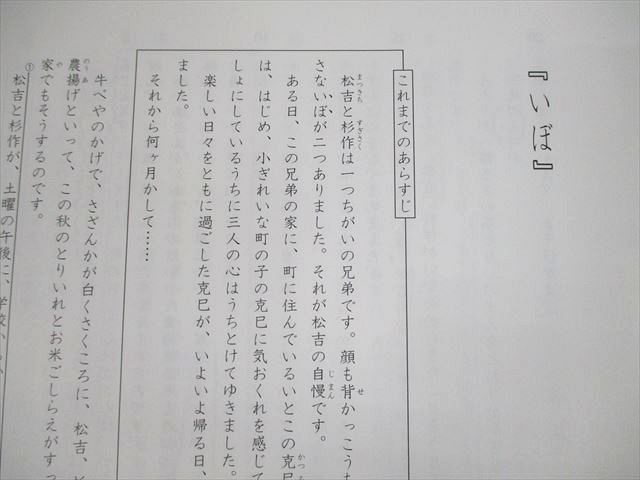 『いぼ』
これまでのあらすじ
松吉と杉作は一つちがいの兄弟です。顔も背かっこうも
さないぼが二つありました。それが松吉の自慢です。
ある日、この兄弟の家に、町に住んでいるいとこの克巳
は、はじめ、小ぎれいな町の子の克巳に気おくれを感じて
しょにしているうちに三人の心はうちとけてゆきました。
楽しい日々をともに過ごした克巳が、いよいよ帰る日、
ました。
それから何ヶ月かして……
牛べやのかげで、さざんかが白くさくころに、松吉、
農揚げといって、この秋のとりいれとお米ごしらえがすっ
家でもそうするのです。
①松吉と杉作が、土曜の午後に、学校